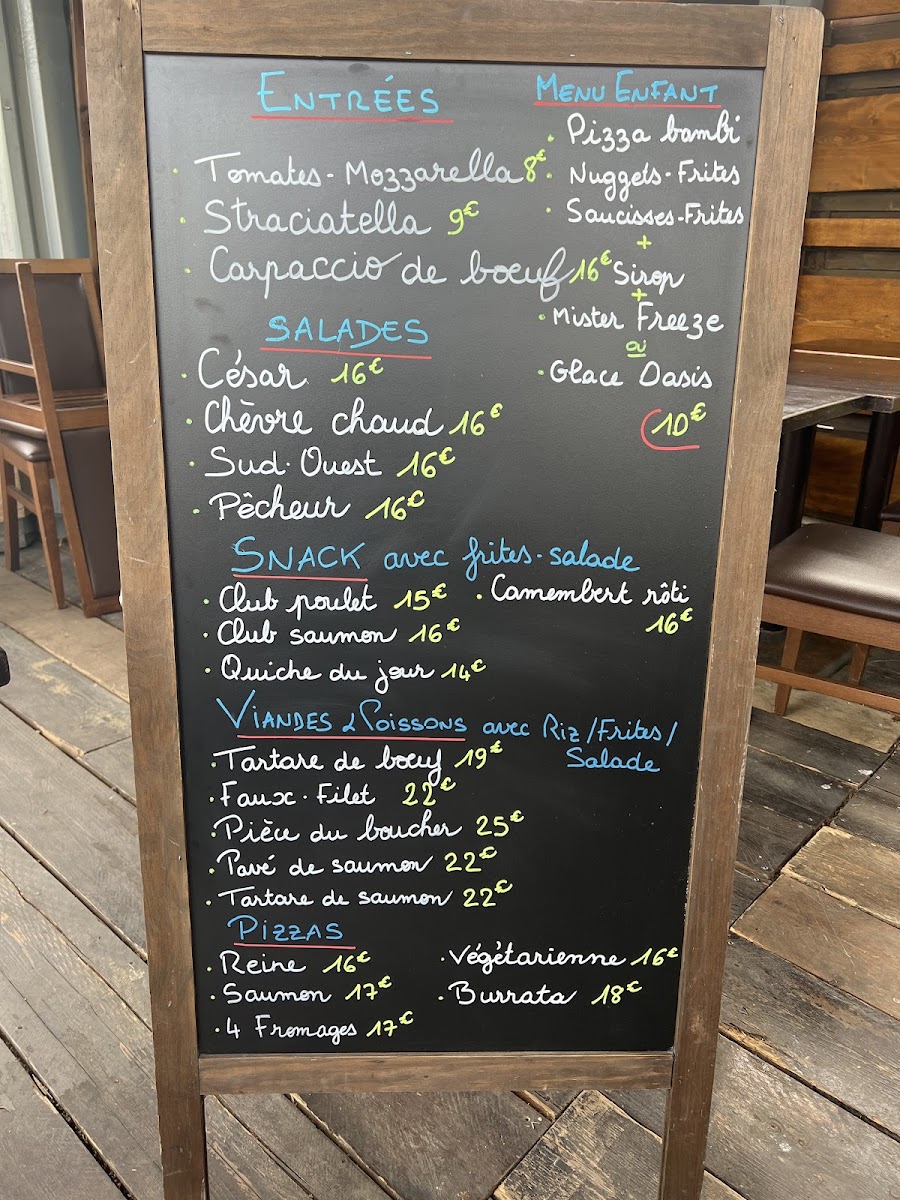 ENTRÉES
Tomates - Mozzarella 8€
Straciatella 9€
Carpaccio de boeuf 16€
MENU ENFANT
Pizza bambi
Nuggets - Frites
Saucisses - Frites
+
Sirop
+
Mister Freeze
ou
Glace Oasis
10€
SALADES
César 16€
Chèvre chaud 16€
Sud-Ouest 16€
Pêcheur 16€
SNACK avec frites - salade
Club poulet 15€
Club saumon 16€
Quiche du jour 14€
Camembert rôti
16€
VIANDES & POISSONS avec Riz / Frites /
Salade
Tartare de boeuf 19€
Faux-Filet 22€
Pièce du boucher 25€
Pavé de saumon 22€
Tartare de saumon 22€
PIZZAS
Reine 16€
Saumon 17€
4 Fromages 17€
Végétarienne 16€
Burrata 18€